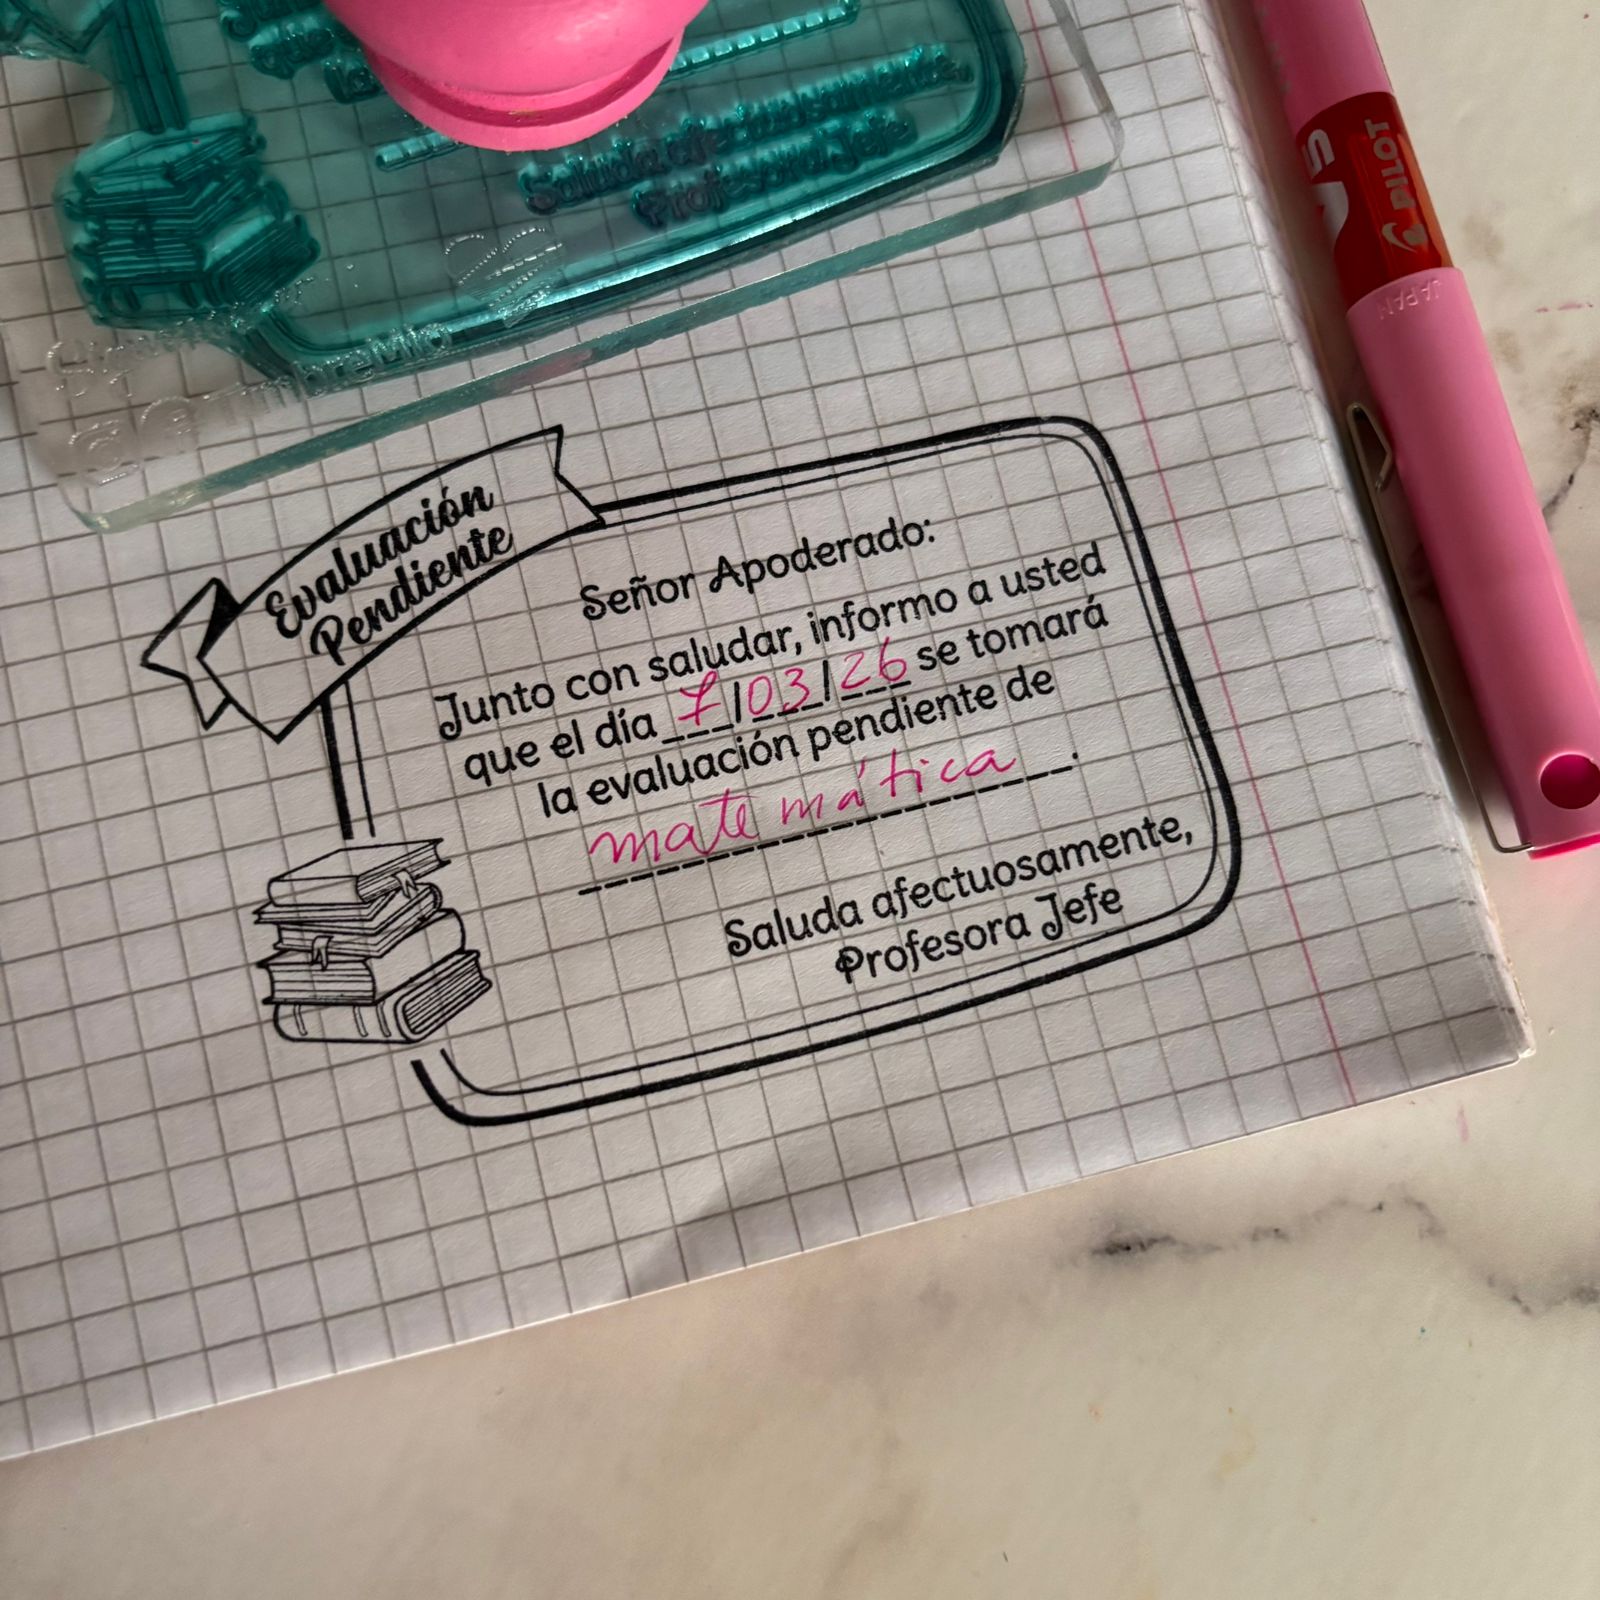 Saluda afectuosamente,
Profesora Jefe
PILOT
JAPAN
V5
Evaluación
Pendiente
Señor Apoderado:
Junto con saludar, informo a usted
que el día 7/03/26 se tomará
la evaluación pendiente de
matemática.
Saluda afectuosamente,
Profesora Jefe